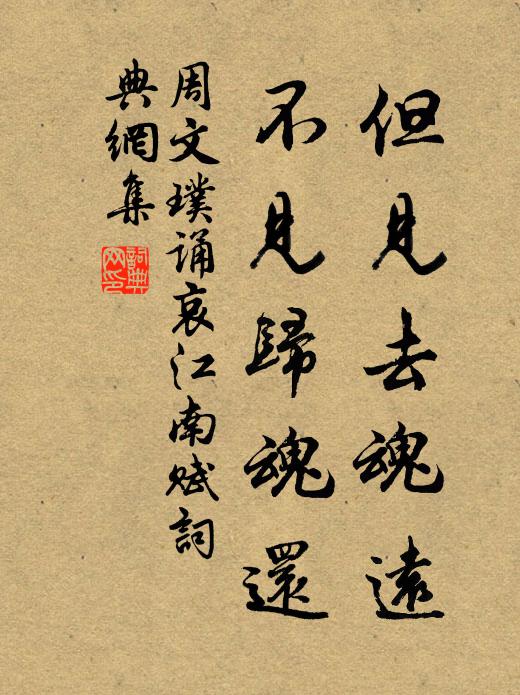 但見去魂遠
不見歸魂還
周文璞誦哀江南賦詞
典網集
詞典
网印